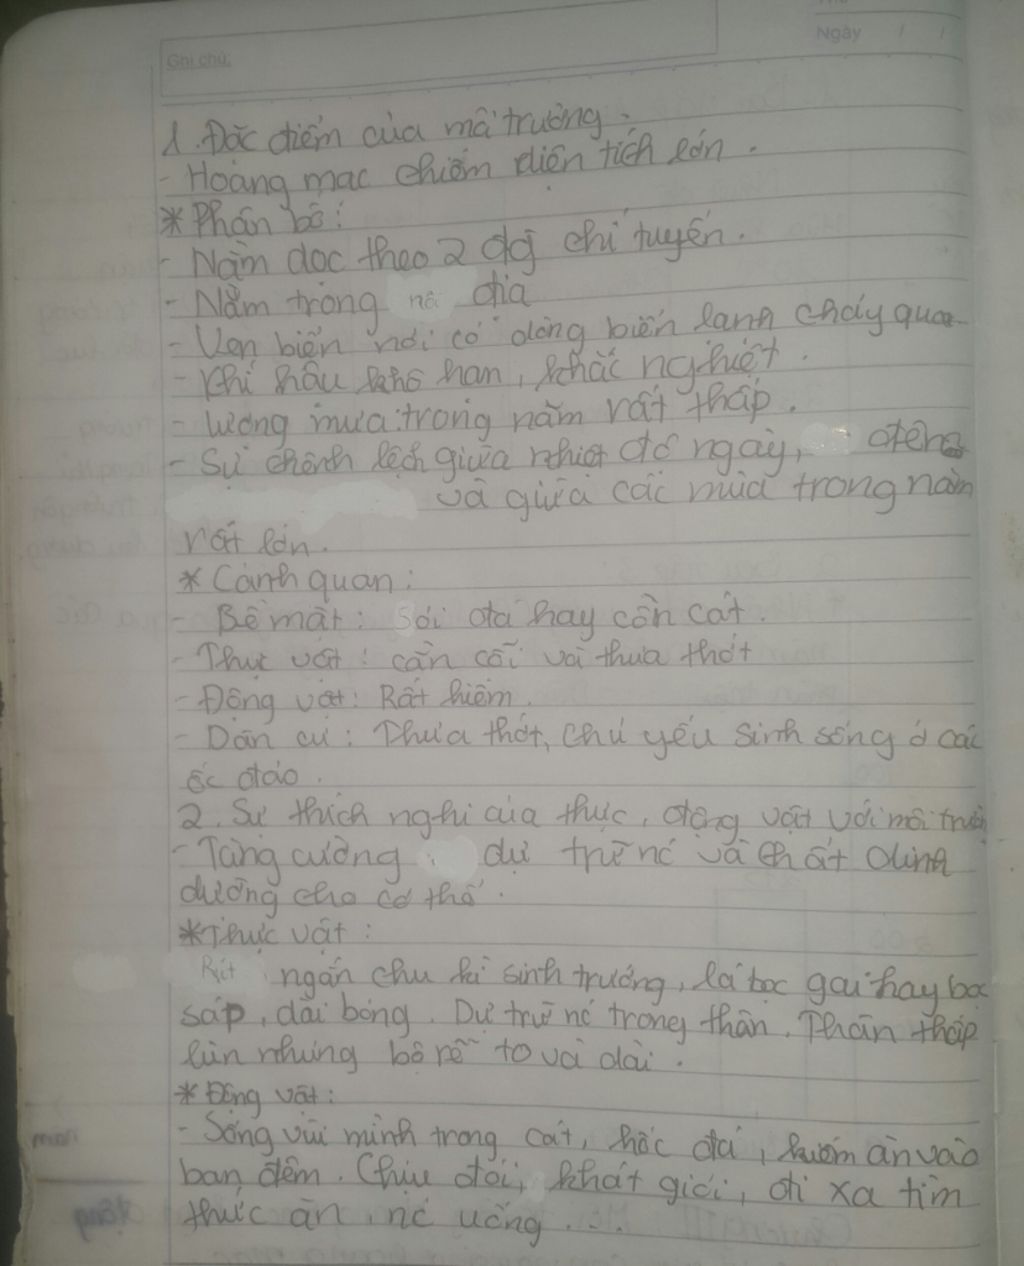 Ghi chú:
Ngày / /
1. Đặc điểm của môi trường.
- Hoang mạc chiếm diện tích lớn.
* Phân bố:
- Nằm dọc theo 2 đg chí tuyến.
- Nằm trong nội địa
- Ven biển nơi có dòng biển lạnh chảy qua
- Khí hậu khô hạn, khắc nghiệt.
- Lượng mưa trong năm rất thấp.
- Sự chênh lệch giữa nhiệt độ ngày, đêm
và giữa các mùa trong năm
rất lớn.
* Cảnh quan:
- Bề mặt: Sỏi đá hay cồn cát.
- Thực vật: cằn cỗi và thưa thớt
- Động vật: Rất hiếm.
- Dân cư: Thưa thớt, chủ yếu sinh sống ở các
ốc đảo.
2. Sự thích nghi của thực, động vật với môi trườn
- Tăng cường dự trữ nc và chất dinh
dưỡng cho cơ thể.
* Thực vật:
Rút ngắn chu kì sinh trưởng, lá bọc gai hay bọc
sáp, dài bóng. Dự trữ nc trong thân. Thân thấp
lùn nhưng bộ rễ to và dài.
* Động vật:
- Sống vùi mình trong cát, hốc đá, kiếm ăn vào
ban đêm. Chịu đói, khát giỏi, đi xa tìm
thức ăn, nc uống...